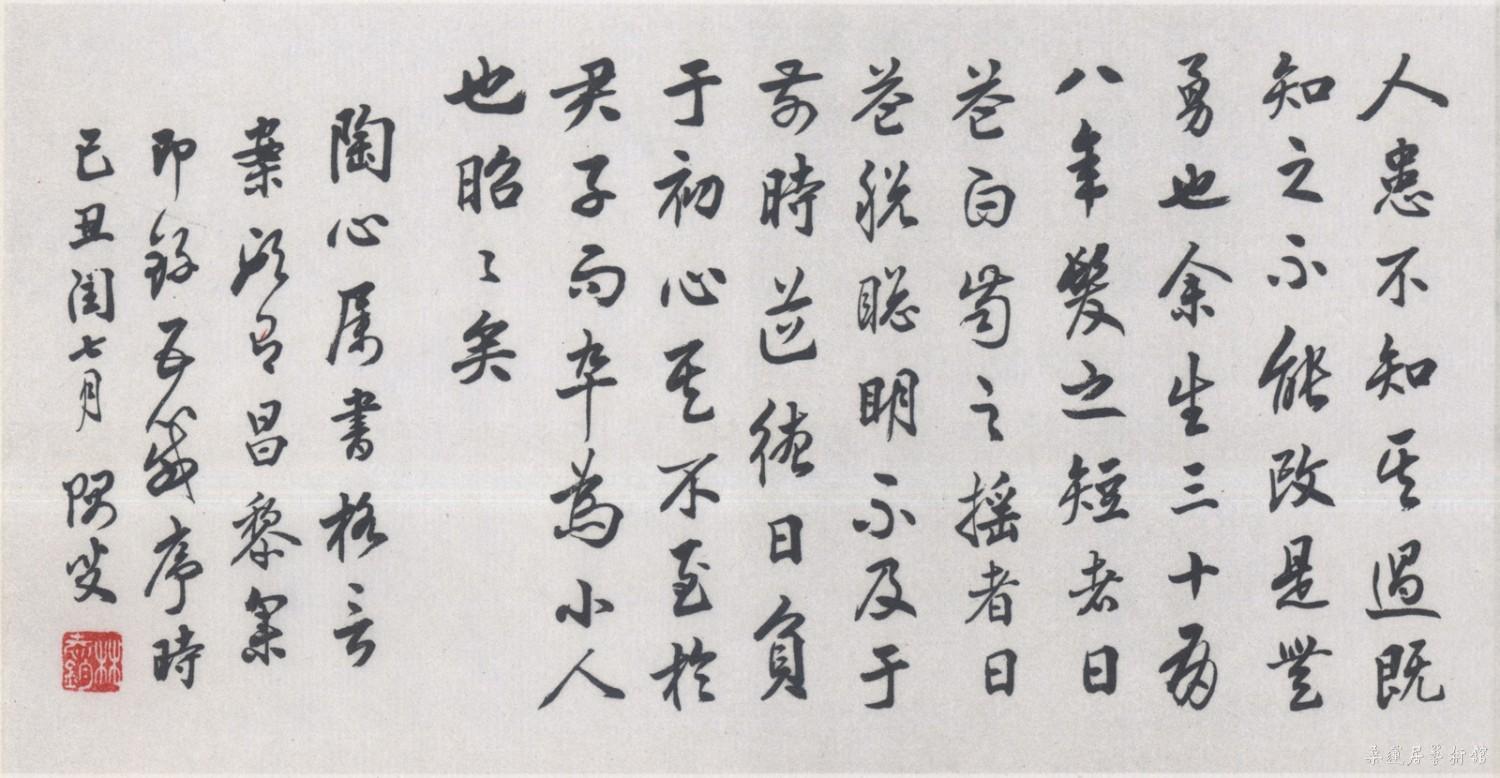 人患不知其過既
知之不能改是無
勇也余生三十有
八年髮之短者日
益白齒之搖者日
益脱聰明不及于
前時道德日負
于初心其不至於
君子而卒為小人
也昭〻矣
陶心属書格言
案頭有昌黎集
即錄五箴序時
己丑閏七月 隅叟
桑蓮居藝術館